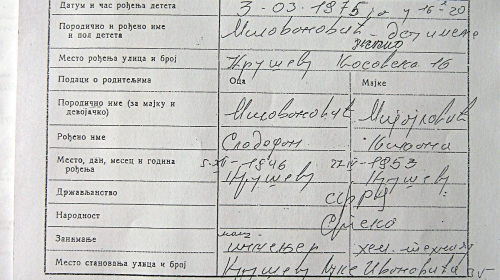 Датум и час рођења детета 3-03-1975 у 16-20
Породично и рођено име и пол детета Миловановић - без имена женско
Место рођења улица и број Крушевац Косовска 16
Подаци о родитељима Оца Мајке
Породично име (за мајку и девојачко) Миловановић Мијајловић
Рођено име Слободан
Место, дан, месец и година рођења 1946 1953 Крушевац Крушевац
Држављанство СФРЈ
Народност Српска
Занимање инжењер хем. техничар
Место становања улица и број Крушевац Луке Ивановића